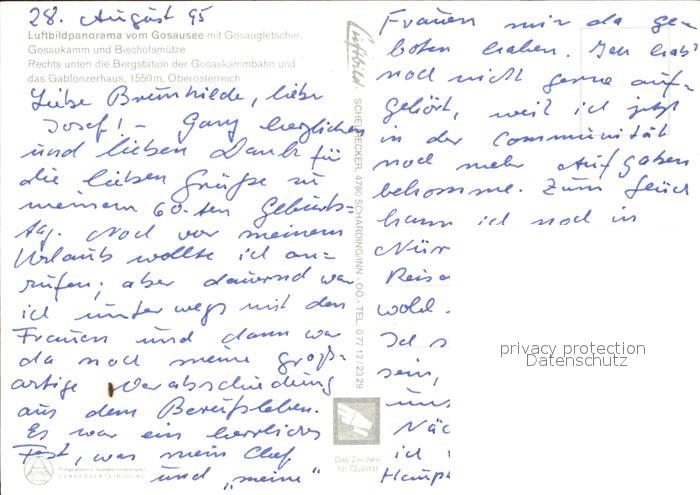 28. August 95
Luftbildpanorama vom Gosausee mit Gosaugletscher,
Gosaukamm und Bischofsmütze
Rechts unten die Bergstation der Gosaukammbahn und
das Gablonzerhaus, 1550m, Oberösterreich
Liebe Brunhilde, lieber
Josef! - Ganz herzlichen
und lieben Dank für
die lieben Grüße zu
meinem 60-ten Geburts=
tag. Noch vor meinem
Urlaub wollte ich an=
rufen; aber dauernd war
ich unterwegs mit den
Frauen und dann war
da noch meine groß=
artige Verabschiedung
aus dem Berufsleben.
Es war ein herrliches
Fest, was mein Chef
und "meine"
LANDESVERTEIDIGUNG
Luftbild
SCHERRECKER, 4780 SCHÄRDING/INN - OÖ.- TEL. 0 77 12 / 23 29
Das Zeichen
für Qualität
Frauen mir da ge-
boten haben. Ich hab'
noch nicht gerne auf-
gehört, weil ich jetzt
in der Communität
noch mehr Aufgaben
bekomme. Zum Glück
kann ich noch in
Nür
Reise
wohl.
Ich s
sein,
uns
Näc
ich
Haupt
privacy protection
Datenschutz